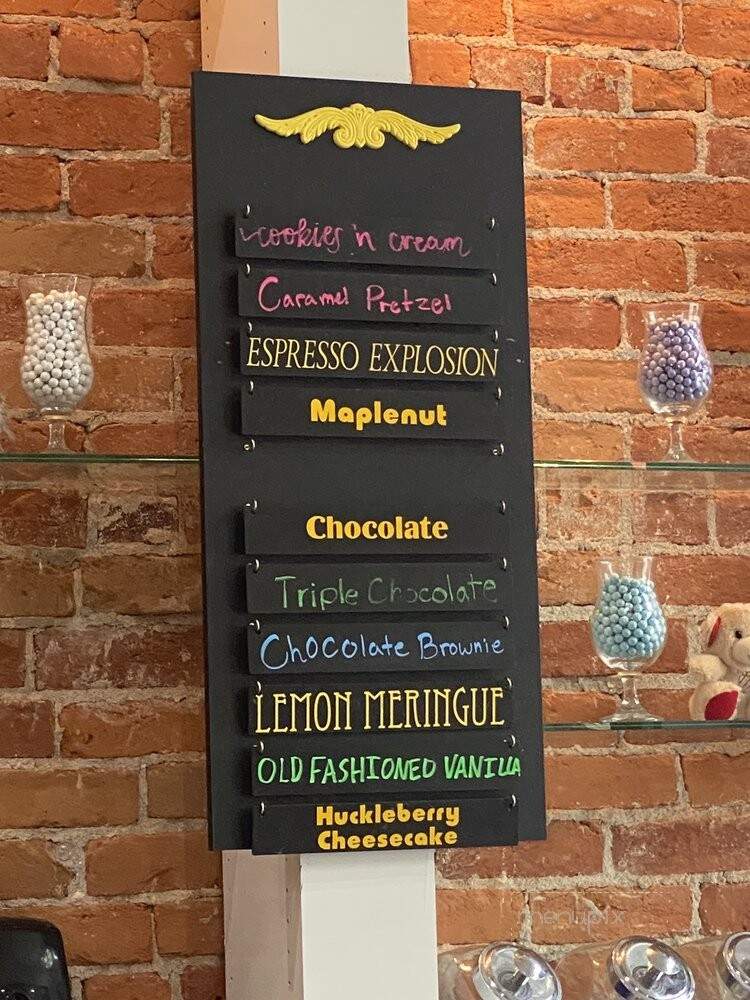 cookies 'n cream
Caramel Pretzel
ESPRESSO EXPLOSION
Maplenut
Chocolate
Triple Chocolate
Chocolate Brownie
LEMON MERINGUE
OLD FASHIONED VANILLA
Huckleberry
Cheesecake
menupix